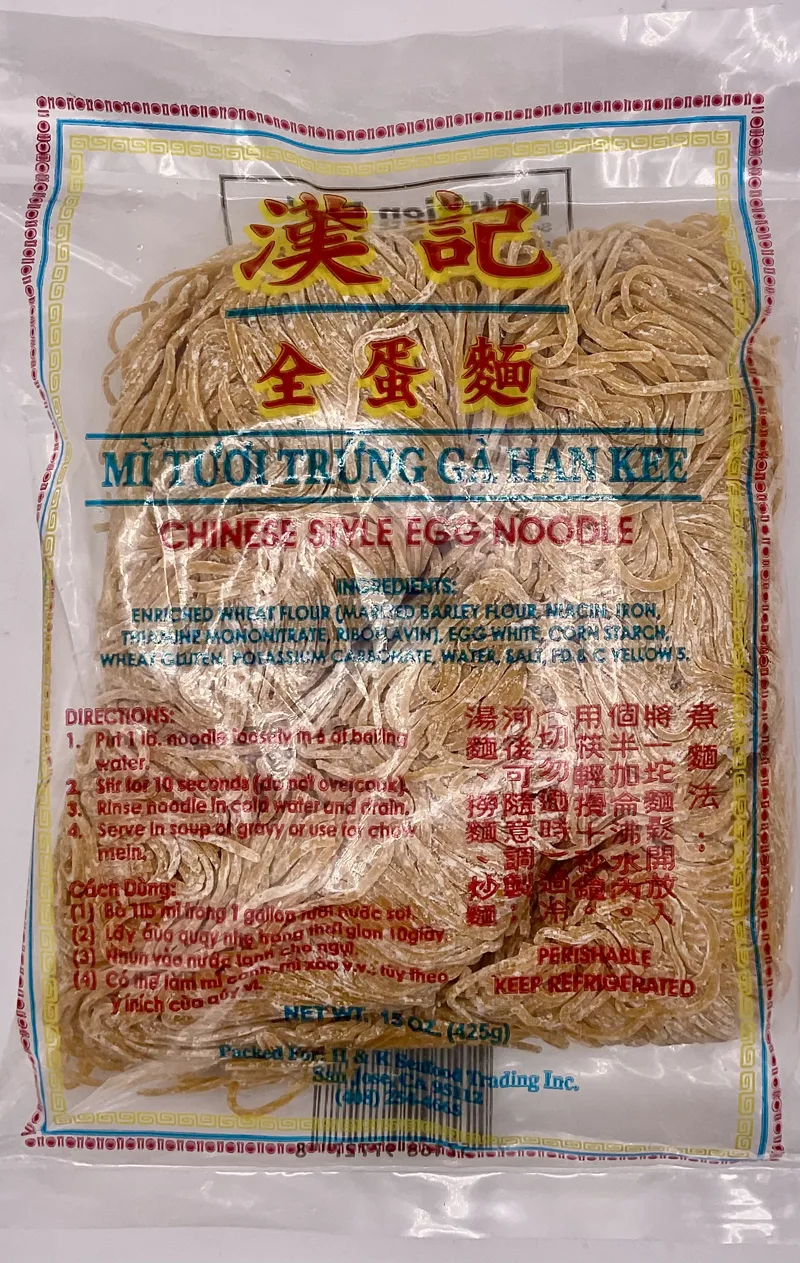 Nutrition
漢記
全蛋麵
MÌ TƯƠI TRỨNG GÀ HAN KEE
CHINESE STYLE EGG NOODLE
INGREDIENTS:
ENRICHED WHEAT FLOUR (MALTED BARLEY FLOUR, NIACIN, IRON,
THIAMINE MONONITRATE, RIBOFLAVIN), EGG WHITE, CORN STARCH,
WHEAT GLUTEN, POTASSIUM CARBONATE, WATER, SALT, FD & C YELLOW 5.
DIRECTIONS:
1. Put 1 lb. noodle loosely in 6 qt boiling
water.
2. Stir for 10 seconds (do not overcook).
3. Rinse noodle in cold water and drain.
4. Serve in soup or gravy or use for chow
mein.
煮麵法:
將一坨麵鬆開放入
個半加侖沸水內。
用筷輕攪十秒鐘。
(切勿過時)過冷
河後可隨意調製:
湯麵、撈麵、炒麵
Cách Dùng:
(1) Bỏ 1lb mì trong 1 gallon rưỡi nước sôi.
(2) Lấy đũa quậy nhẹ trong thời gian 10giây.
(3) Nhún vào nước lạnh cho nguội.
(4) Có thể làm mì canh, mì xào v.v.. tùy theo
ý thích của qúy vị.
PERISHABLE
KEEP REFRIGERATED
NET WT. 15 OZ. (425g)
Packed For: H & R Seafood Trading Inc.
San Jose, CA 95112
(408)